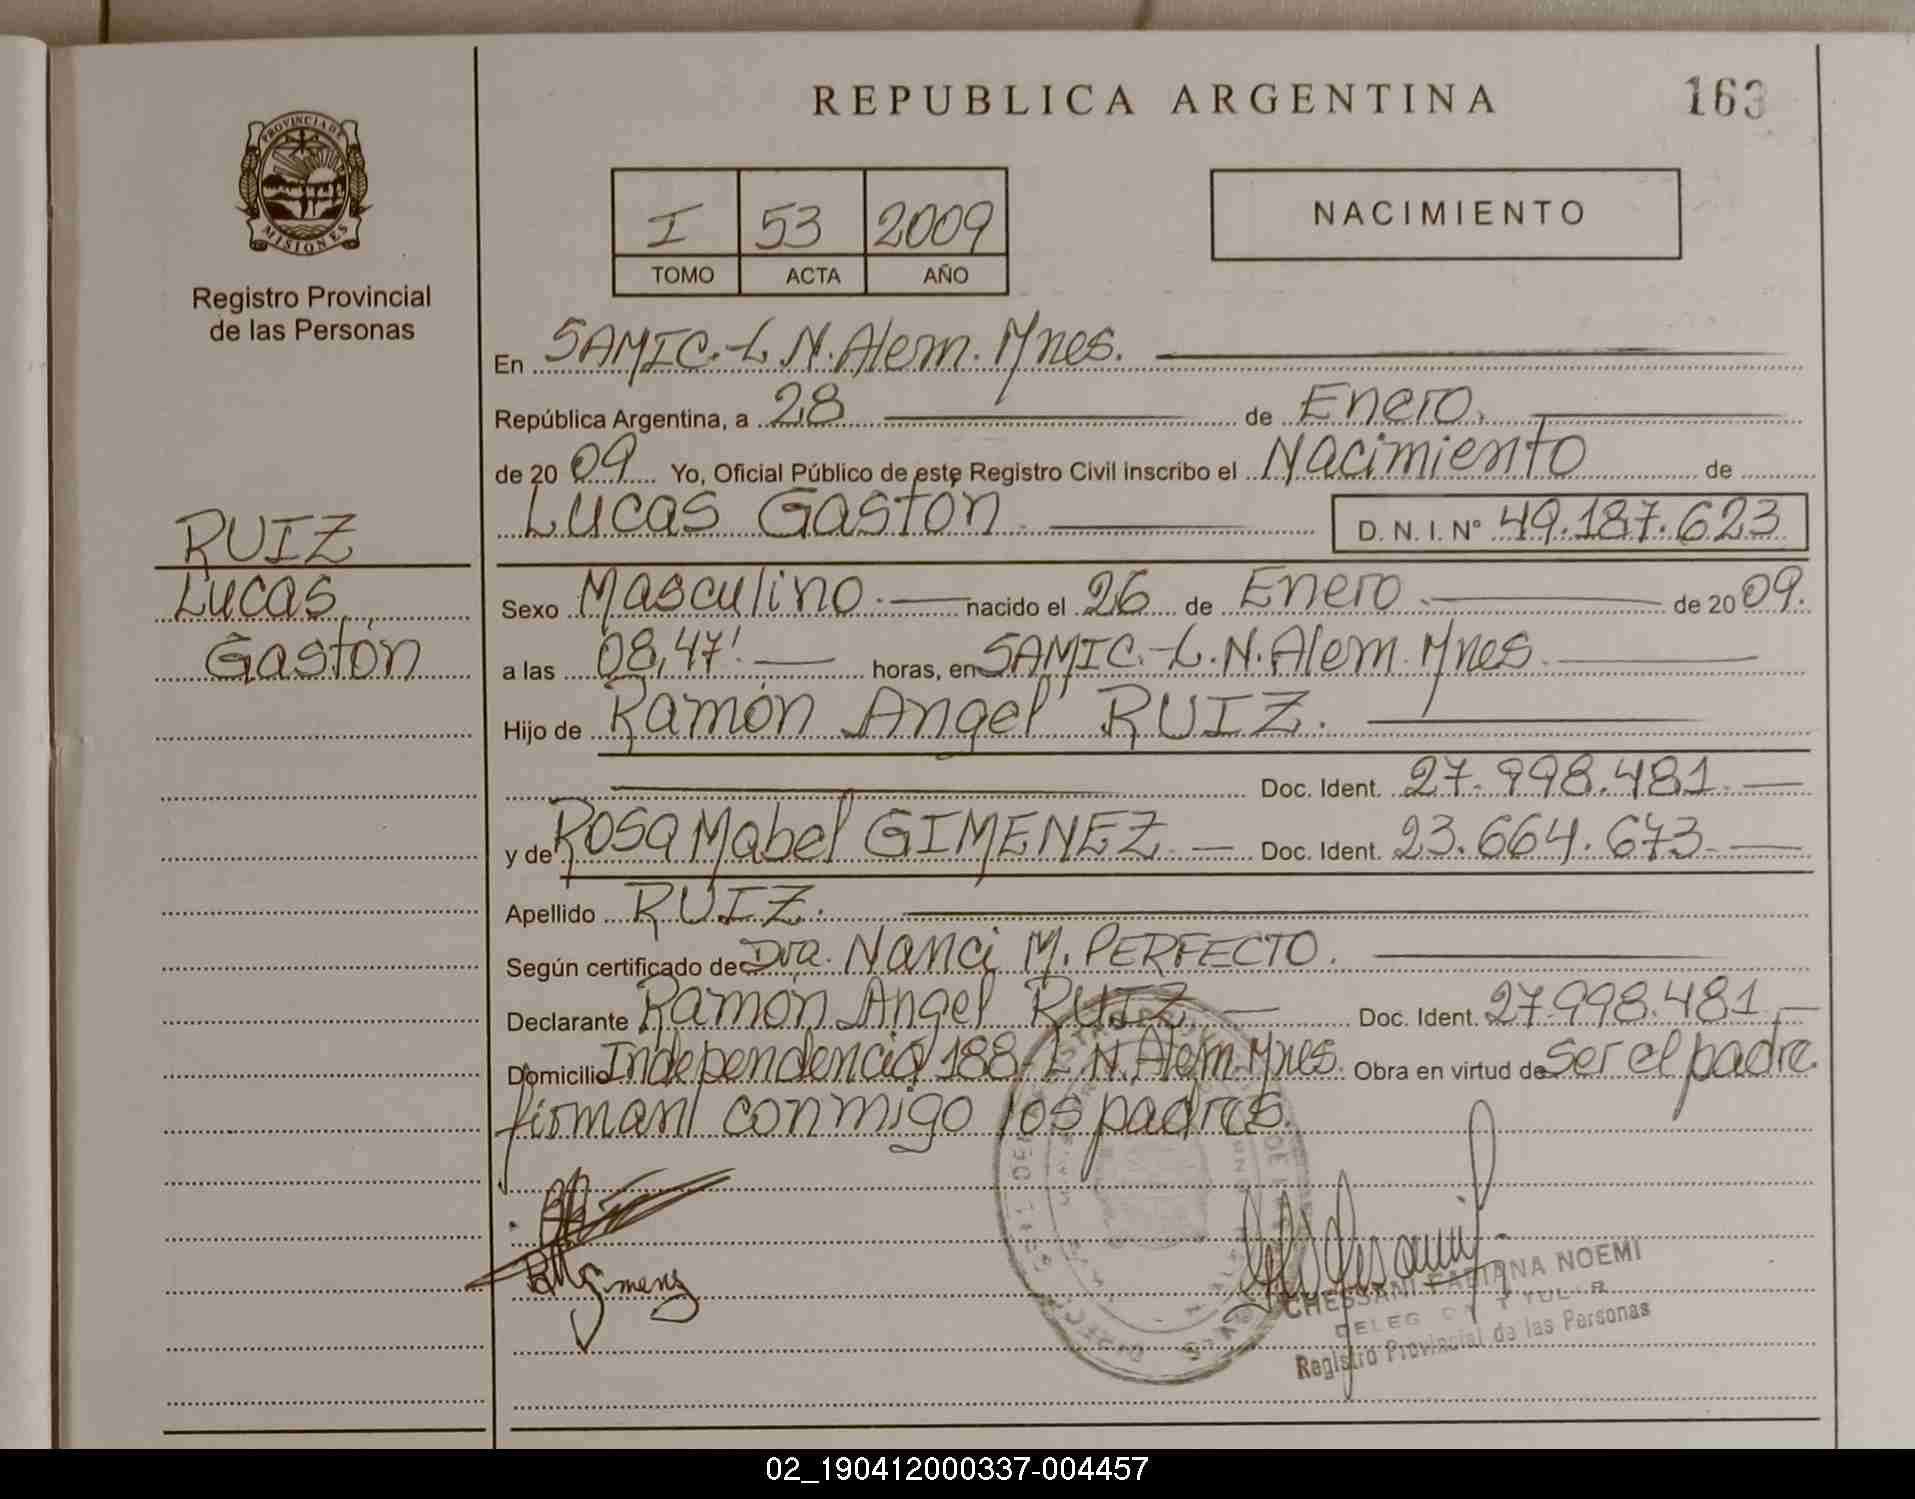 REPUBLICA ARGENTINA
163
PROVINCIA DE
MISIONES
Registro Provincial
de las Personas
I 53 2009
TOMO ACTA AÑO
NACIMIENTO
En SAMIC.-L.N.Alem.Mnes.
República Argentina, a 28 de Enero.
de 20 09 Yo, Oficial Público de este Registro Civil inscribo el Nacimiento de
Lucas Gastón. D. N. I. Nº 49.187.623
RUIZ
Lucas
Gastón
Sexo Masculino. nacido el 26 de Enero. de 20 09.
a las 08,47'. horas, en SAMIC.-L.N.Alem.Mnes.
Hijo de Ramón Angel RUIZ.
Doc. Ident. 27.998.481.
y de Rosa Mabel GIMENEZ. Doc. Ident. 23.664.673.
Apellido RUIZ.
Según certificado de Dra. Nanci M. PERFECTO.
Declarante Ramón Angel RUIZ Doc. Ident. 27.998.481
Domicilio Independencia 188-L.N.Alem.Mnes. Obra en virtud de ser el padre.
firman conmigo los padres.
CHESSANI FABIANA NOEMI
DELEGADA TITULAR
Registro Provincial de las Personas
02_190412000337-004457